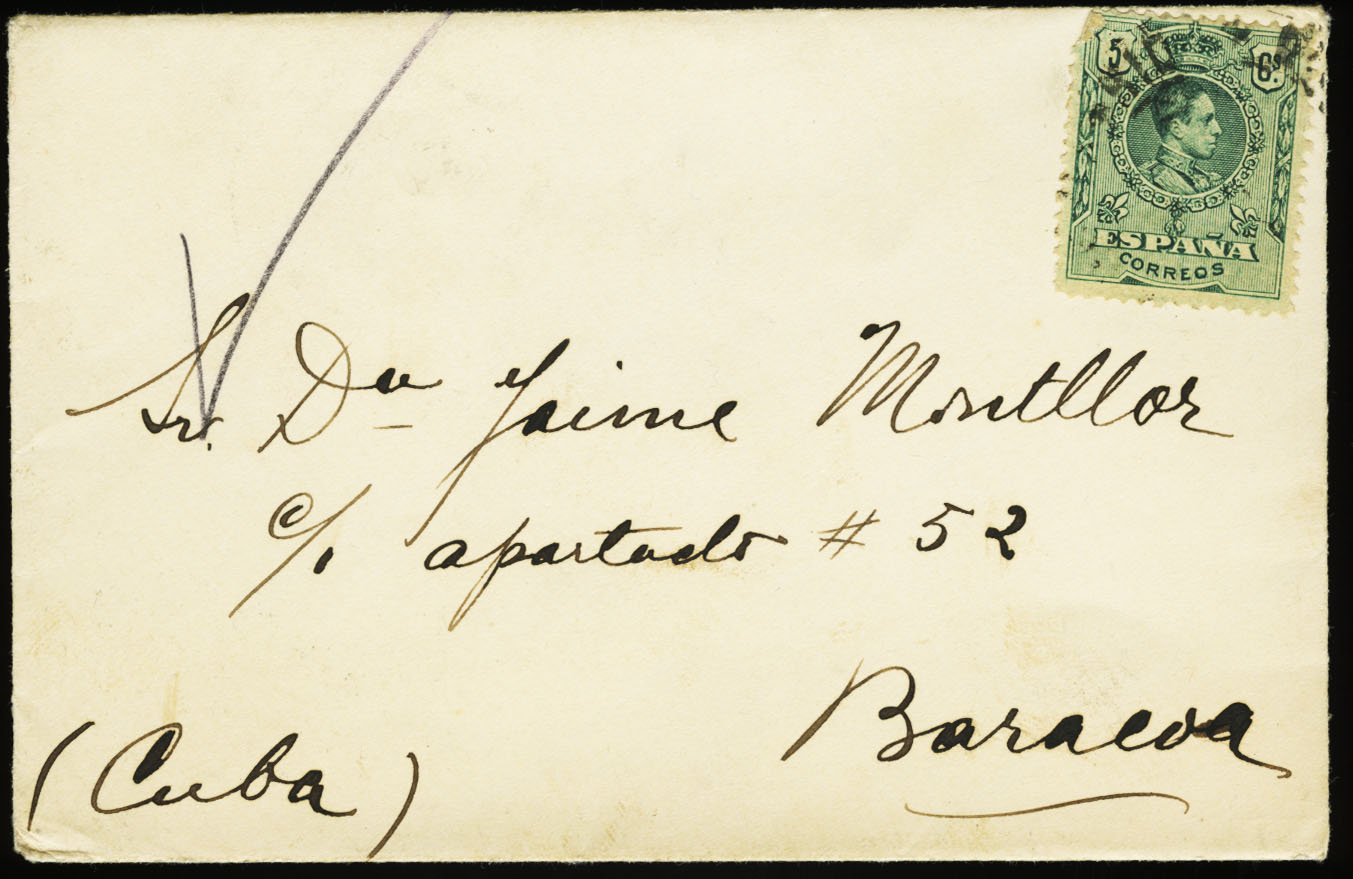 5 Cs
ESPAÑA
CORREOS
Sr. Dn Jaime Montllor
c/. apartado # 52
Baracoa
(Cuba)